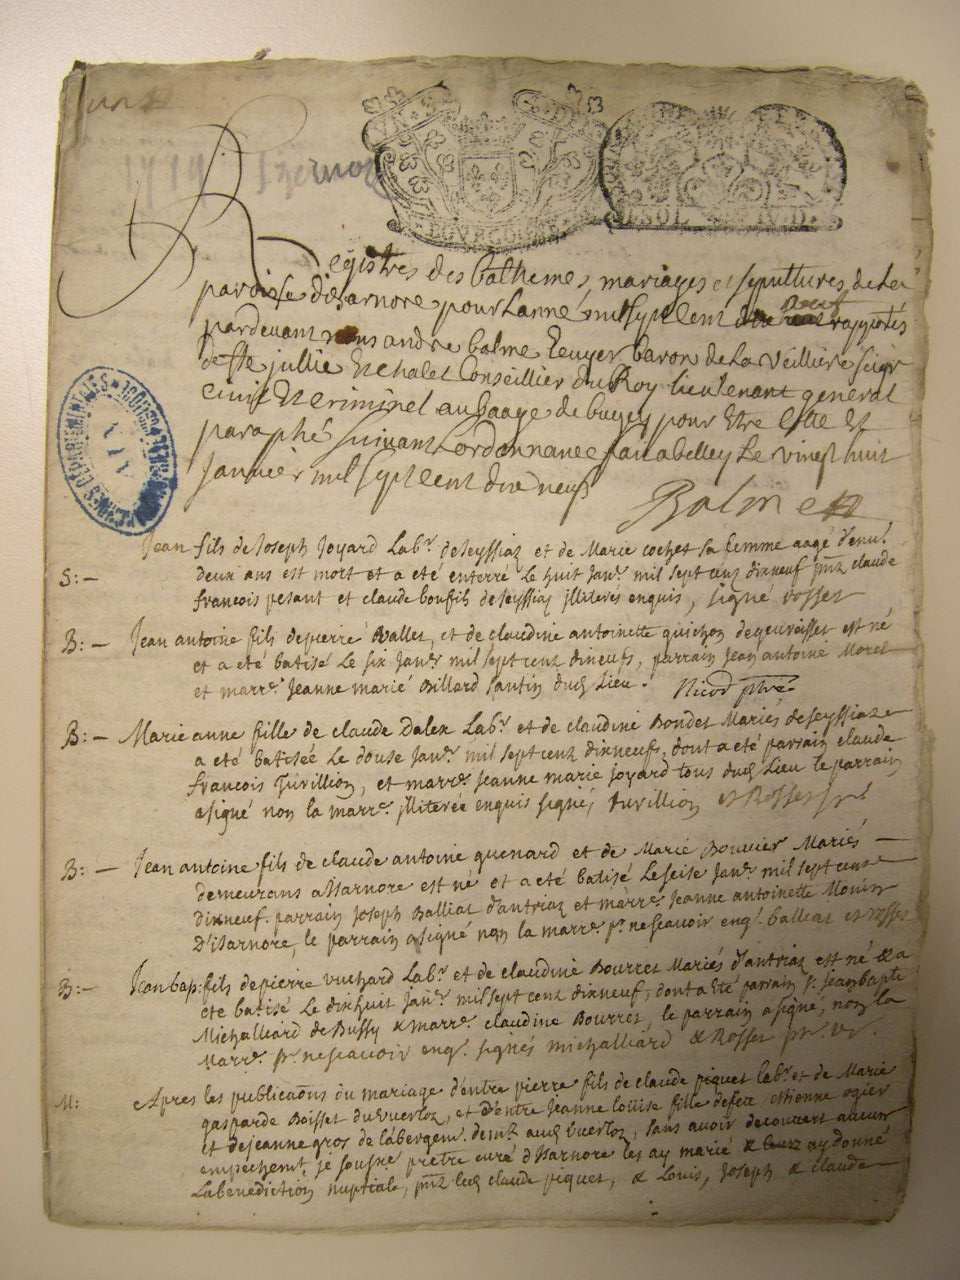 1719 Izernore
BOURGOGNE
SOL
Registres des bathemes, mariages et sepultures de la
paroisse disarnore pour Lanné mil sept cent neuf rapportés
pardevant nous andré balme Ecuyer baron de La veilliere seigr
de ste jullie Et chalet Conseillier du Roy lieutenant general
civil Et criminel au baage de bugey pour Etre Cotté Et
paraphé suivant Lordonnance fait a belley Le vingt huit
Janvier mil sept cent dix neuf
Balme
S:- Jean fils de Joseph Joyard Labr. de seyssiaz et de Marie cochet sa femme aagé d'envr.
deux ans est mort et a eté enterré Le huit Janr. mil sept cenz dixneuf pntz claude
françois pesant et claude bonfils de seyssiaz jlliterés enquis, signé rosset
B:- Jean antoine fils de pierre Ballet, et de claudine antoinette guichon de geuvrisset est né
et a eté batisé Le six Janr. mil sept cenz dixneufs, parrain Jean antoine Moret
et marre. Jeanne marié Billard santin dud Lieu. Nicod ptre
B:- Marie anne fille de claude Dalex Labr. et de claudine Bondet Mariés de seyssiaz
a été batisée Le douse Janr. mil sept cenz dixneufs, dont a eté parrain claude
françois Turillion, et marre. Jeanne marie Joyard tous dud Lieu le parrain
a signé non la marre. jlliterée enquis signés, turillion et Rosset
B:- Jean antoine fils de claude antoine quenard et de Marie Bouvier Mariés
demeurans a Isarnore est né et a eté batisé Le seise Janr. mil sept cenz
dixneuf. parrain Joseph Balliat d'antriaz et marre. Jeanne antoinette Monin
D'Isarnore, le parrain a signé non la marre. pr. ne scavoir enq. balliat et rosset
B:- Jean bap: fils de pierre vuchard Labr. et de claudine Bourret Mariés d'antriaz est né & a
eté batisé Le dixhuit Janr. mil sept cenz dixneuf, dont a eté parrain Sr. Jean bapte
Michalliard de Bussy & marre. claudine Bourret, le parrain a signé, non la
Marre. pr. ne scavoir enq. signés michalliard & Rosset
M: Apres les publicaons du mariage d'entre pierre fils de claude piquet labr. et de Marie
gasparde Boisset du vuertoz, et d'entre Jeanne loüise fille de feu etienne ogier
et de jeanne gros de labergem. demtz aud vuertoz, sans avoir decouvert aucun
empechemt. je sousné prêtre curé d'Isarnore les ay marié & leurz ay donné
La benediction nuptiale, pntz led claude piquet, & Louis, Joseph & claude